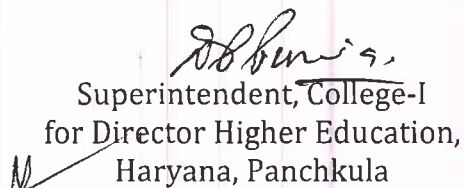 Superintendent, College-I
for Director Higher Education,
Haryana, Panchkula